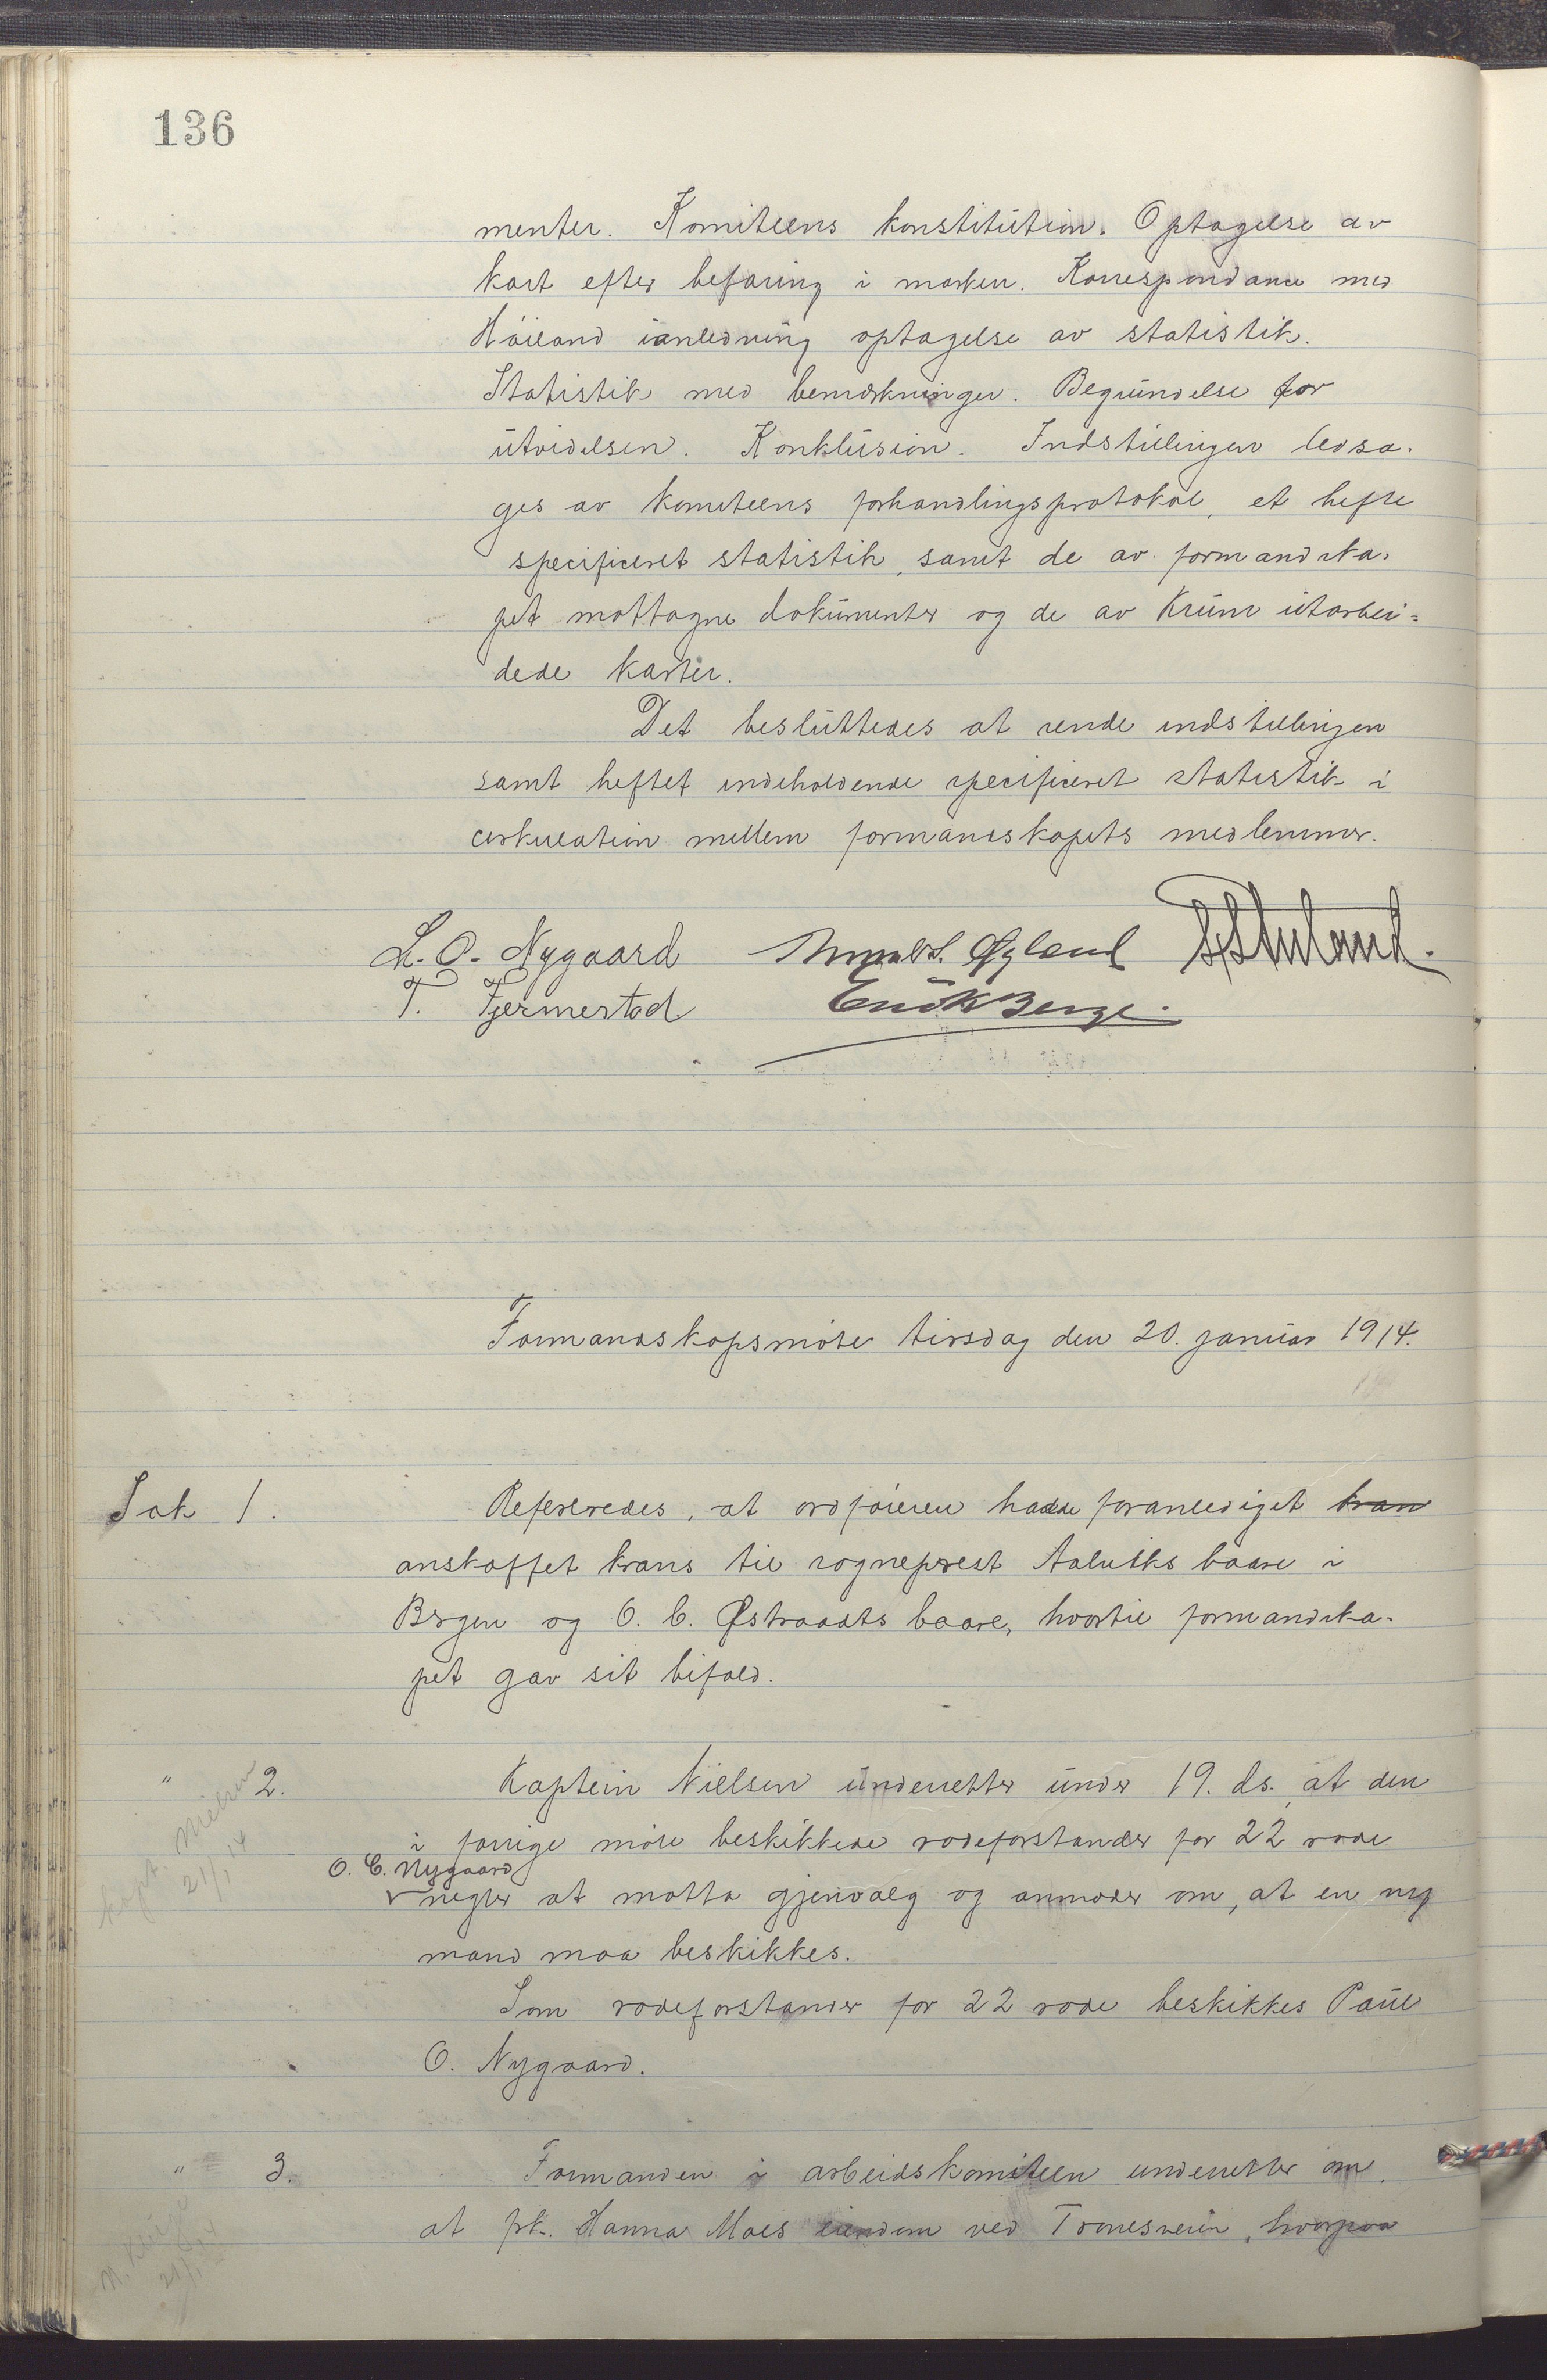 136
menter. Komiteens konstitution. Optagelse av
kart efter befaring i marken. Korrespondance med
Höiland ianledning optagelse av statistik.
Statistik med bemerkninger. Begrundelse for
utvidelsen. Konklusion. Indstillingen ledsa-
ges av komiteens forhandlingsprotokol, et hefte
specificeret statistik, samt de av formandska-
pet mottagne dokumenter og de av Krum utarbei-
dede karter.
Det besluttedes at sende indstillingen
samt heftet indeholdende specificeret statistik i
cirkulation mellem formandskapets medlemmer.
L. O. Nygaard
T. Fjermestad Enok Berge.
Formandskapsmöte tirsdag den 20. januar 1914.
Sak 1. Refereredes, at ordföreren hadde foranlediget kran
anskaffet krans til sogneprest Aalviks baare i
Bergen og O. C. Østraadts baare, hvortil formandska-
pet gav sit bifald.
" 2. Kaptein Nielsen underretter under 19. ds. at den
i forrige möte beskikkede rodeforstander for 22 rode
O. C. Nygaard
negter at motta gjenvalg og anmoder om, at en ny
mand maa beskikkes.
Som rodeforstander for 22 rode beskikkes Paul
O. Nygaard.
kapt. Nielsen
21/1 14
" 3. Formanden i arbeidskomiteen underretter om,
at frk. Hanna Maes eiendom ved Tronesveien, hvorpaa